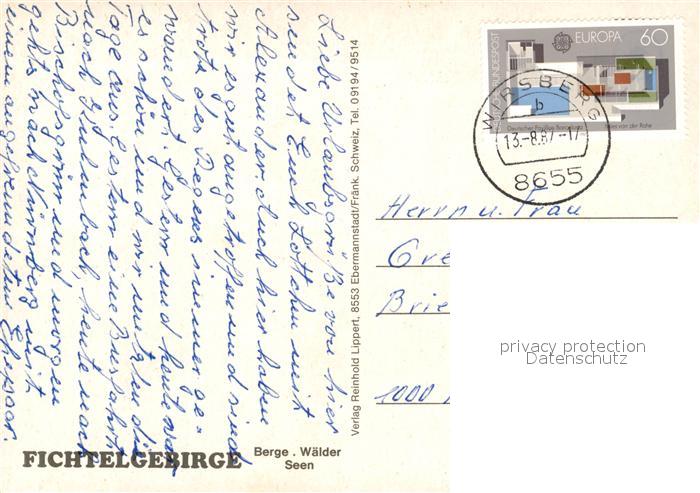 Liebe Urlaubsgrüße von hier
sendet Euch Lottchen mit
Alexander. Auch hier haben
wir es gut angetroffen und sind
trotz des Regens immer ge-
wandert. Gestern und heute war
es schön und wir nutzten die
Tage aus. Gestern eine Busfahrt
nach Kulmbach, heute nach
Bischofsgrün und morgen
geht's nach Nürnberg mit
einem angefreundeten Ehepaar.
FICHTELGEBIRGE
Berge . Wälder
Seen
Verlag Reinhold Lippert, 8553 Ebermannstadt/Fränk. Schweiz, Tel. 09194/9514
DEUTSCHE BUNDESPOST
EUROPA 60
Deutscher Pavillon Barcelona
Mies van der Rohe
WIRSBERG
b
13.-8.87.-17
8655
Herrn u. Frau
Gre
Brie
1000
privacy protection
Datenschutz